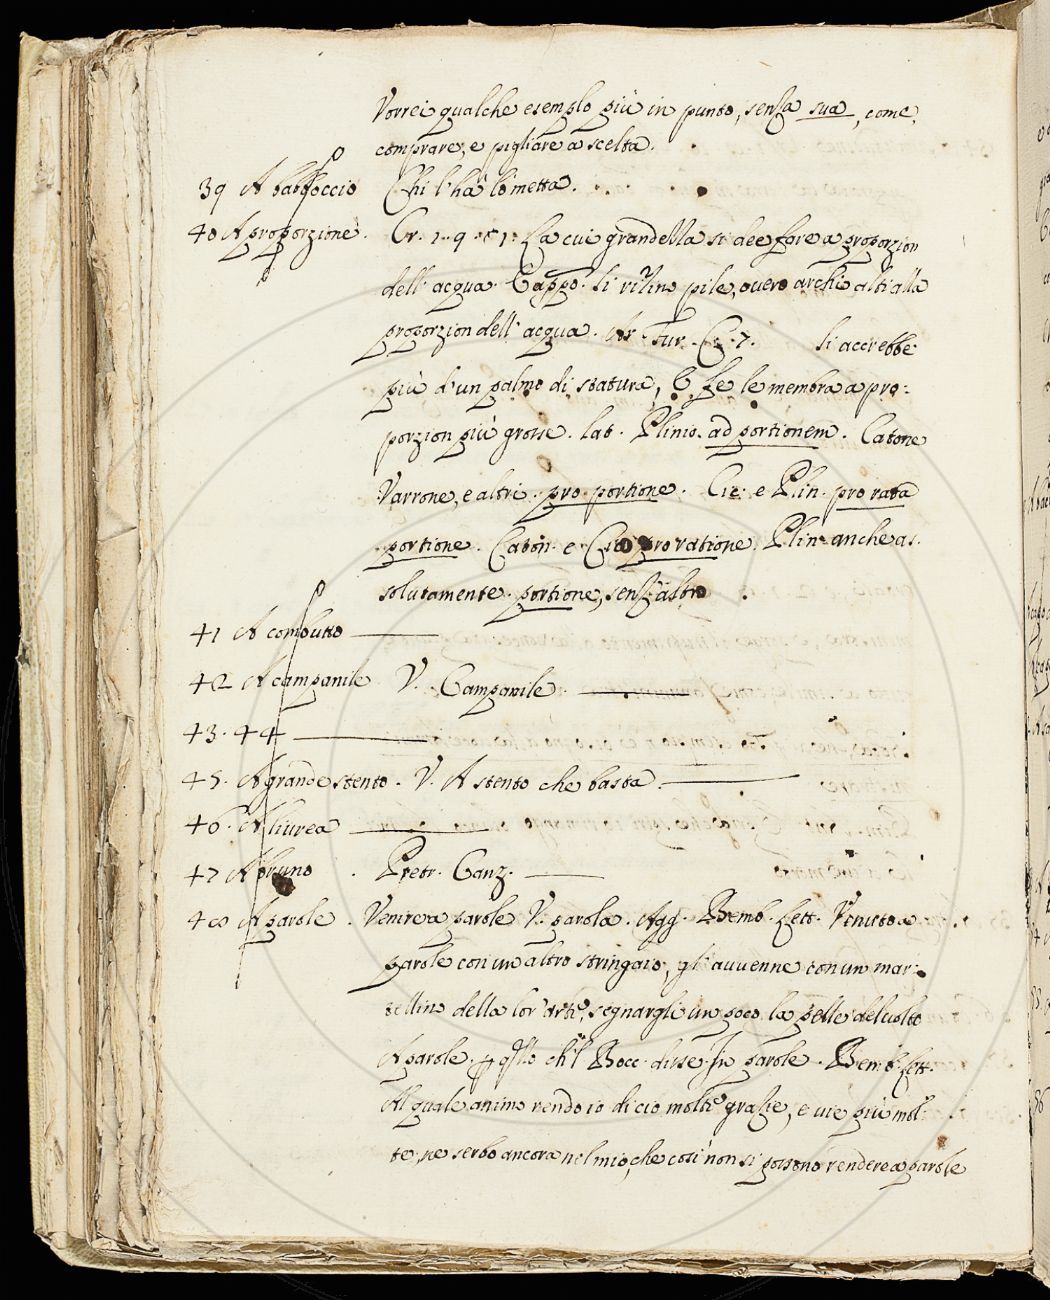 Vorrei qualche esemplo più in punto, senza sua, come,
comprare, e pigliare a scelta.
39 A babboccio Chi l'ha lo metta.
40 A proporzione. Cr. 1. 9. 51. La cui grandella si dee fare a proporzion
dell' acqua. Cappo. Si rizino pile, overo archi alti alla
proporzion dell' acqua. Ar. Fur. C. 7. Si accrebbe
più d'un palmo di statura, E fe le membra a pro:
porzion più grosse. lat. Plinio. ad portionem. Catone
Varrone, e altri. pro portione. Cic. e Plin. pro rata
portione. Caton. e Cic. pro ratione. Plin. anche as.
solutamente. portione, senz' altro
41 A combutto
42 A campanile V. Campanile.
43. 44
45. A grande stento. V. A stento che basta.
46. A livrea
47 A bruno. Petr. Canz.
48 A parole. Venire a parole V. parola. Agg. Bemb. Lett. Venuto a
parole con un altro stringaio, gl' avvenne con un mar:
tellino della lor' arte, segnargli un poco la pelle del volto
A parole. p qllo ch'l Bocc. disse In parole. Bemb. Lett.
Al quale animo rendo io di cio molte grazie, e vie più mol:
te, ne serbo ancora nel mio, che così non si possono rendere a parole